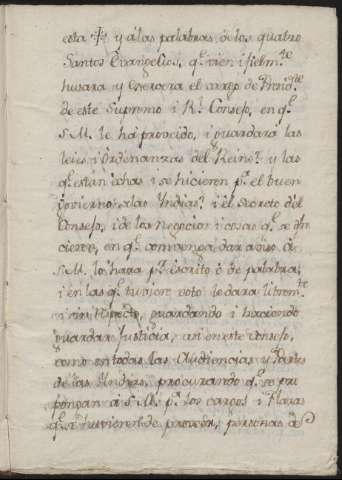 esta ✝ y a las palabras de los quatro
Santos Evangelios, q.e vien i fielm.te
husara y exercera el cargo de Presid.te
de este Supremo i R.l Consejo, en q.e
S. M. le há proveido, i guardara las
leies i Ordenanzas del Reino, y las
q.e estan echas i se hicieren p.a el buen
govierno de las Yndias, i el Secreto del
Consejo, i de los negocios i cosas q.e se ofre
cieren, en q.e convenga dar aviso á
S. M. lo hara p.r escrito ó de palabra,
i en las q.e tuviere voto le dara librem.te
i sin respecto, guardando i haciendo
guardar Justicia, asi en este Consejo,
como en todas las Audiencias y Partes
de las Yndias, procurando q.e se pro
pongan á S. M. p.a los cargos i Plazas
q.e se huvieren de proveer, personas de